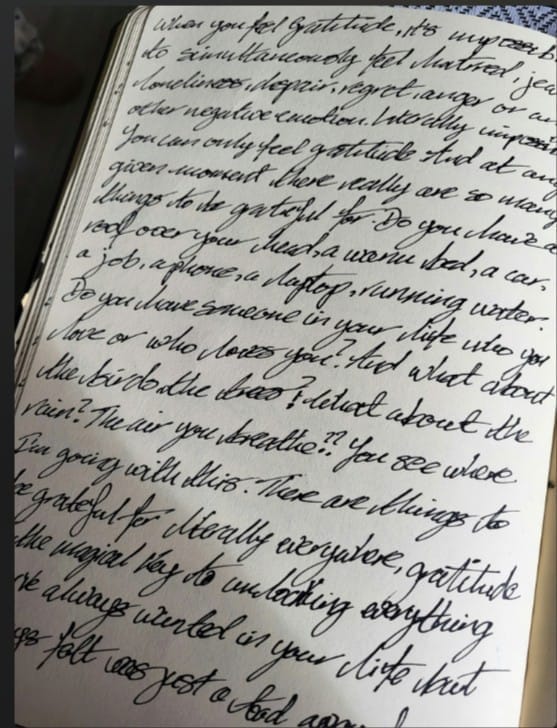 When you feel gratitude, it's
to simultaneously feel hatred,
loneliness, despair, regret, anger or
other negative emotion. Literally
You can only feel gratitude. And at any
given moment there really are so many
things to be grateful for. Do you have a
roof over your head, a warm bed, a car,
a job, a phone, a laptop, running water.
Do you have someone in your life who you
love or who loves you? And what about
the birds, the trees? What about the
rain? The air you breathe?? You see where
I'm going with this. There are things to
be grateful for literally everywhere, gratitude
the magical key to unlocking everything
always wanted in your life but
felt was just a